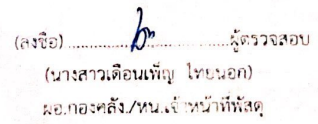 (ลงชื่อ)..............................ผู้ตรวจสอบ
(นางสาวเดือนเพ็ญ ไทยนอก)
ผอ.กองคลัง./หน.เจ้าหน้าที่พัสดุ